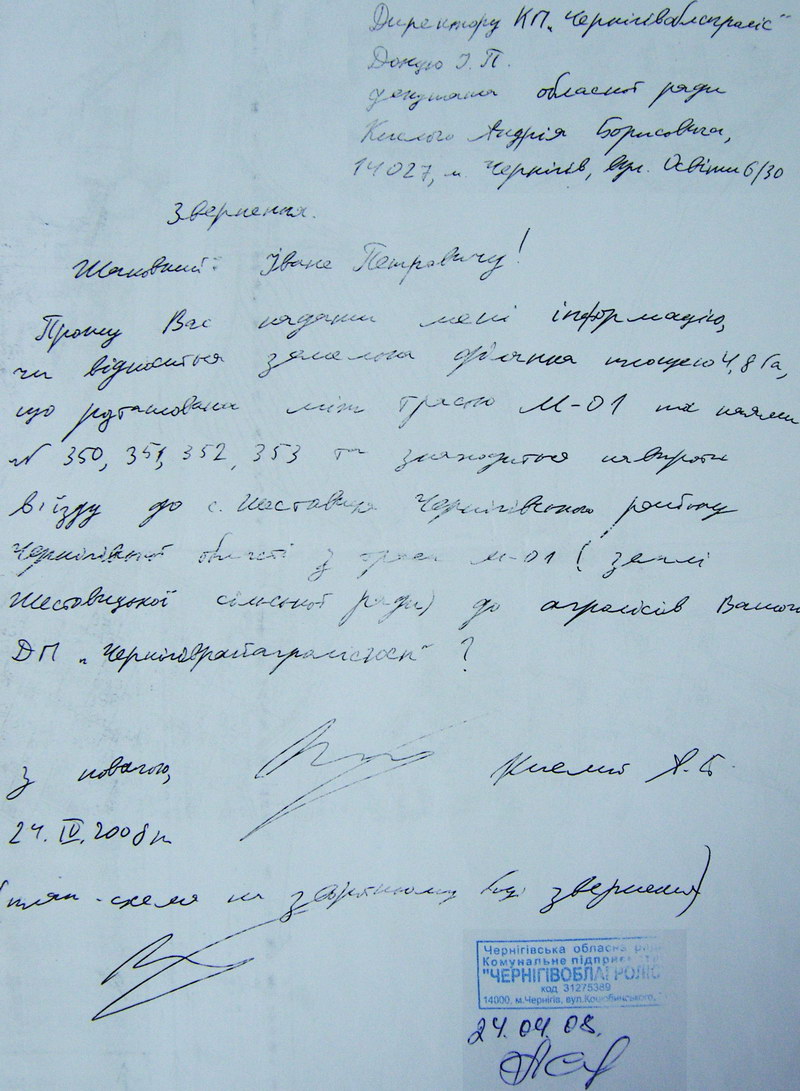 Директору КП „Чернігівоблагроліс“
Доцю І. П.
депутата обласної ради
Кислого Андрія Борисовича,
14027, м. Чернігів, вул. Освіти 6/30
Звернення.
Шановний Іване Петровичу!
Прошу Вас надати мені інформацію,
чи відноситься земельна ділянка площею 4,8 Га,
що розташована між трасою М-01 та паями
№ 350, 351, 352, 353 та знаходиться навпроти
в'їзду до с. Шестовиця Чернігівського району
Чернігівської області з траси М-01 (землі
Шестовицької сільської ради) до агролісів Вашого
ДП „Чернігіврайагролісгосп“ ?
З повагою, Кислий А. Б.
24. IV. 2008 р.
(план-схема на зворотньому боці звернення)
Чернігівська обласна рада
Комунальне підприємст
"ЧЕРНІГІВОБЛАГРОЛІС
код 31275389
14000, м.Чернігів, вул.Коцюбинського,
24.04.08.